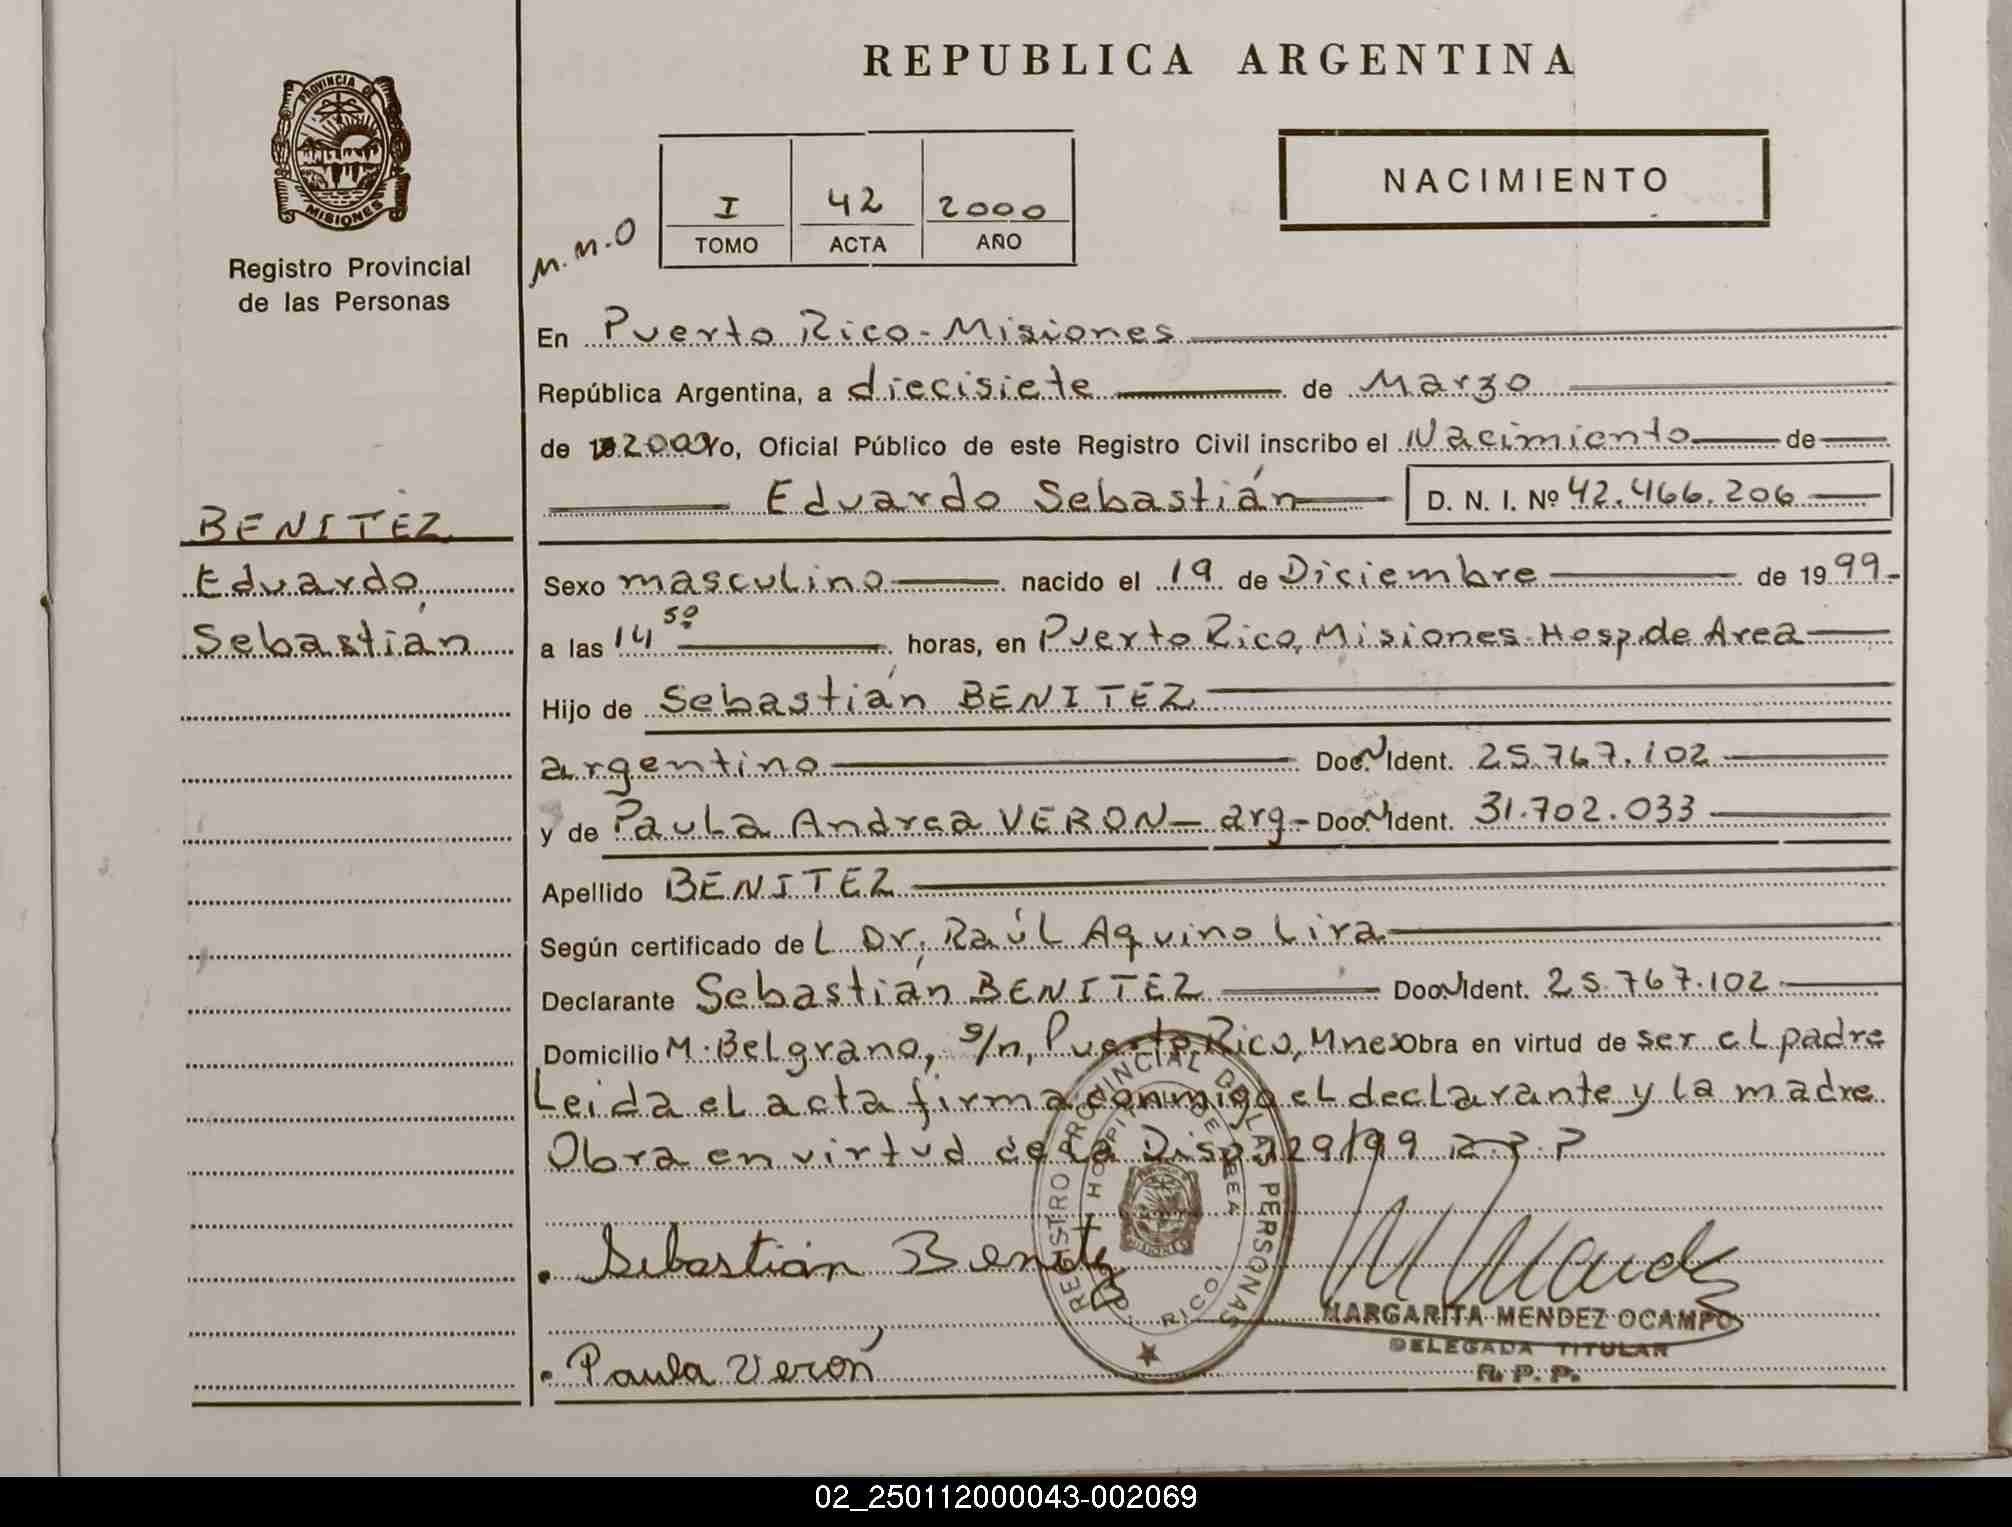 REPUBLICA ARGENTINA
PROVINCIA DE
MISIONES
Registro Provincial
de las Personas
NACIMIENTO
I 42 2000
TOMO ACTA AÑO
M.M.O
En Puerto Rico - Misiones
República Argentina, a diecisiete de Marzo
de 2000 Yo, Oficial Público de este Registro Civil inscribo el Nacimiento de
Eduardo Sebastián D. N. I. Nº 42.466.206
BENITEZ
Eduardo
Sebastián
Sexo masculino nacido el 19 de Diciembre de 1999-
a las 14 50 horas, en Puerto Rico, Misiones-Hosp. de Area
Hijo de Sebastián BENITEZ
argentino Doc. N Ident. 25.767.102
y de Paula Andrea VERON - arg - Doc. N Ident. 31.702.033
Apellido BENITEZ
Según certificado del Dr. Raúl Aquino Lira
Declarante Sebastián BENITEZ Doc. N Ident. 25.767.102
Domicilio M. Belgrano, s/n, Puerto Rico, Mnes Obra en virtud de ser el padre
Leida el acta firma conmigo el declarante y la madre
Obra en virtud de la Disp. 229/99 R.P.P
REGISTRO PROVINCIAL DE LAS PERSONAS
RICO
Sebastián Benitez
MARGARITA MENDEZ OCAMPO
DELEGADA TITULAR
R. P. P.
Paula Verón
02_250112000043-002069